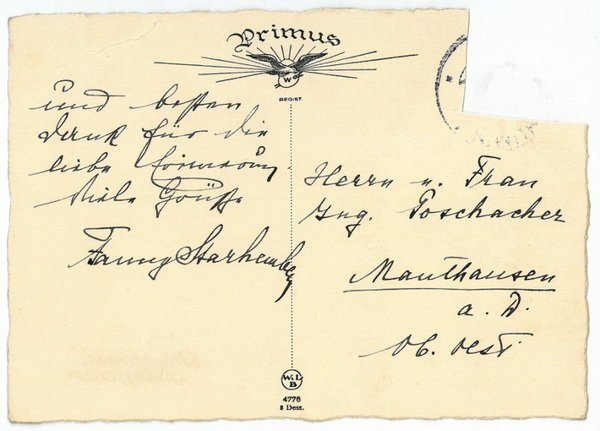 Primus
W
REGIST.
und besten
Dank für die
liebe Erinnerung.
Viele Grüße
Fanny Starhemberg
Herrn u. Frau
Ing. Poschacher
Mauthausen
a. D.
Ob. Oest
W.L.
B
4776
8 Dess.